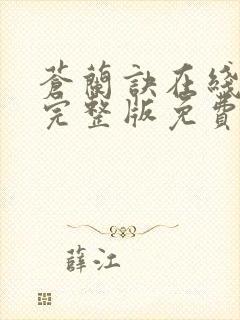 蒼蘭訣在綫
完整版免費
薛江